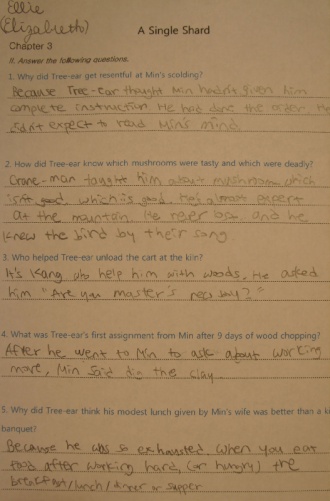 Ellie
(Elizabeth)
A Single Shard
Chapter 3
II. Answer the following questions.
1. Why did Tree-ear get resentful at Min's scolding?
Because Tree-ear thought Min hadn't given him
complete instruction. He had done the order. He
didn't expect to read Min's mind.
2. How did Tree-ear know which mushrooms were tasty and which were deadly?
Crane-man taught him about mushroom which
isn't good, which is good. He's almost expert
at the mountain. He refer and he
knew the bird by their song.
3. Who helped Tree-ear unload the cart at the kiln?
It's Kang who help him with woods. He asked
him "Are you master's new boy?"
4. What was Tree-ear's first assignment from Min after 9 days of wood chopping?
After he went to Min to ask about working
more, Min said dig the clay.
5. Why did Tree-ear think his modest lunch given by Min's wife was better than a
banquet?
Because he was so exhausted. When you eat
food after working hard, (or hungry) the
breakfast/lunch/dinner or supper